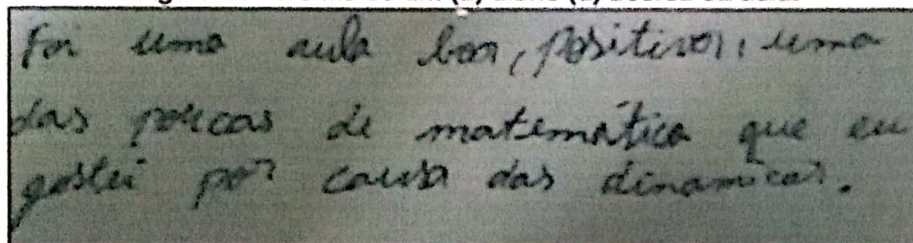 Foi uma aula boa, positiva, uma
das poucas de matemática que eu
gostei por causa das dinamicas.